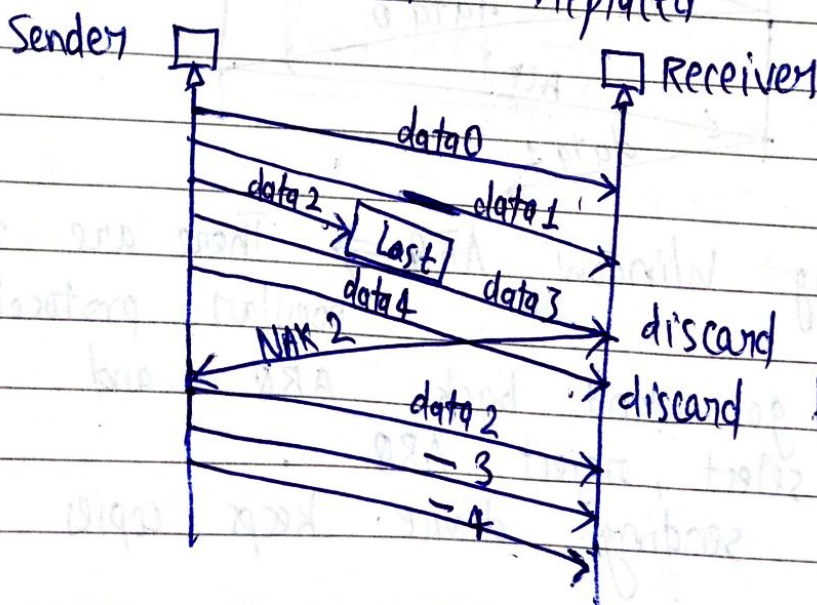 Sender
Receiver
data0
data 2
data1
Last
data3
data4
NAK 2
discard
discard
data 2
- 3
- 4